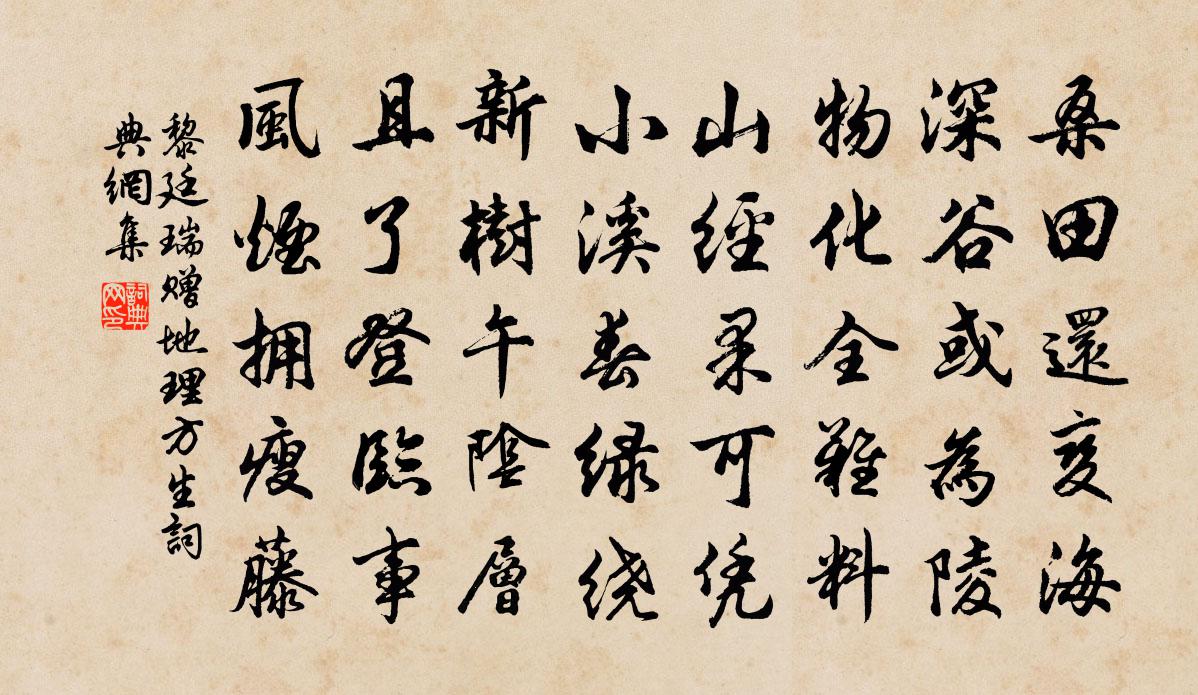 桑田還变海
深谷或為陵
物化全難料
山經果可凭
小溪春绿绕
新樹午陰層
且了登臨事
風煙拥瘦藤
黎廷瑞赠地理方生詞
典網集
詞典
网印